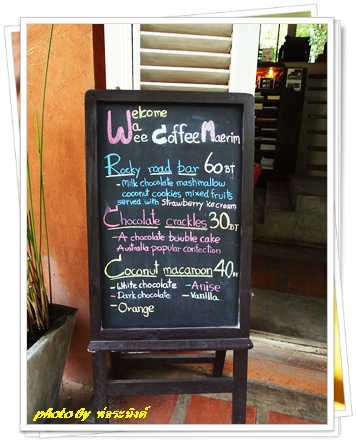 Welcome
Wa
wee Coffee Maerim
Rocky road bar 60 BT
- milk chocolate mashmallow
coconut cookies mixed fruits
served with Strawberry ice cream
Chocolate crackles 30 BT
- A chocolate bubble cake
Australia popular confection
Coconut macaroon 40 BT
- White chocolate - Anise
- Dark chocolate - Vanilla
- Orange
photo By พ่อระมิงค์